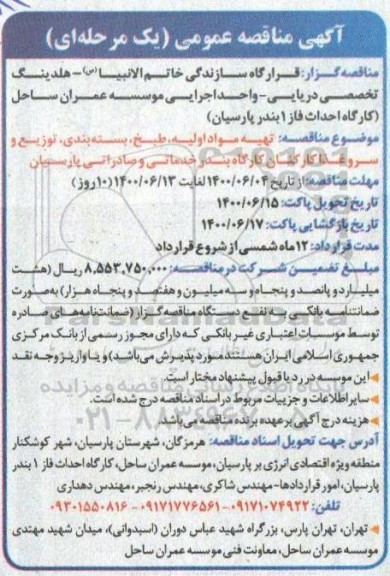 آگهی مناقصه عمومی (یک مرحله‌ای)
مناقصه‌گزار: قرارگاه سازندگی خاتم‌الانبیا (ص) - هلدینگ
تخصصی دریایی - واحد اجرایی موسسه عمران ساحل
(کارگاه احداث فاز ۱ بندر پارسیان)
موضوع مناقصه: تهیه مواد اولیه، طبخ، بسته‌بندی، توزیع و
سرو غذا کارکنان کارگاه بندر خدماتی و صادراتی پارسیان
مهلت مناقصه: از تاریخ ۱۴۰۰/۰۶/۰۴ لغایت ۱۴۰۰/۰۶/۱۳ (۱۰ روز)
تاریخ تحویل پاکت: ۱۴۰۰/۰۶/۱۵
تاریخ بازگشایی پاکت: ۱۴۰۰/۰۶/۱۷
مدت قرارداد: ۱۲ ماه شمسی از شروع قرارداد
مبلغ تضمین شرکت در مناقصه: ۸,۵۵۳,۷۵۰,۰۰۰ ریال (هشت
میلیارد و پانصد و پنجاه و سه میلیون و هفتصد و پنجاه هزار) به صورت
ضمانتنامه بانکی به نفع دستگاه مناقصه‌گزار (ضمانت‌نامه‌های صادره
توسط موسسات اعتباری غیربانکی که دارای مجوز رسمی از بانک مرکزی
جمهوری اسلامی ایران هستند مورد پذیرش می‌باشد) و یا واریز وجه نقد
این موسسه در رد یا قبول پیشنهاد مختار است.
سایر اطلاعات و جزییات مربوط در اسناد مناقصه درج شده است.
هزینه درج آگهی بر عهده برنده مناقصه می‌باشد.
آدرس جهت تحویل اسناد مناقصه: هرمزگان، شهرستان پارسیان، شهر کوشکنار
منطقه ویژه اقتصادی انرژی بر پارسیان، موسسه عمران ساحل، کارگاه احداث فاز ۱ بندر
پارسیان، امور قراردادها - مهندس شاکری، مهندس رنجبر، مهندس دهداری
تلفن: ۰۹۱۷۱۰۷۴۹۲۲ - ۰۹۱۷۱۷۷۶۵۶۱ - ۰۹۳۰۱۵۵۰۸۱۶
تهران، تهران پارس، بزرگراه شهید عباس دوران (اسبدوانی)، میدان شهید مهتدی
موسسه عمران ساحل، معاونت فنی موسسه عمران ساحل